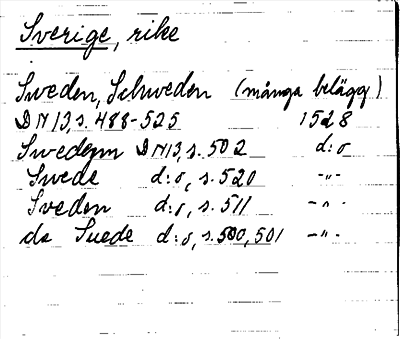 Sverige, rike
Sweden, Schweden (många belägg)
DN13, s. 488-525 1528
Swedenn DN13, s. 502 d:o
Swede d:o, s. 520 -"-
Sveden d:o, s. 511 -"-
de Suede d:o, s. 500, 501 -"-